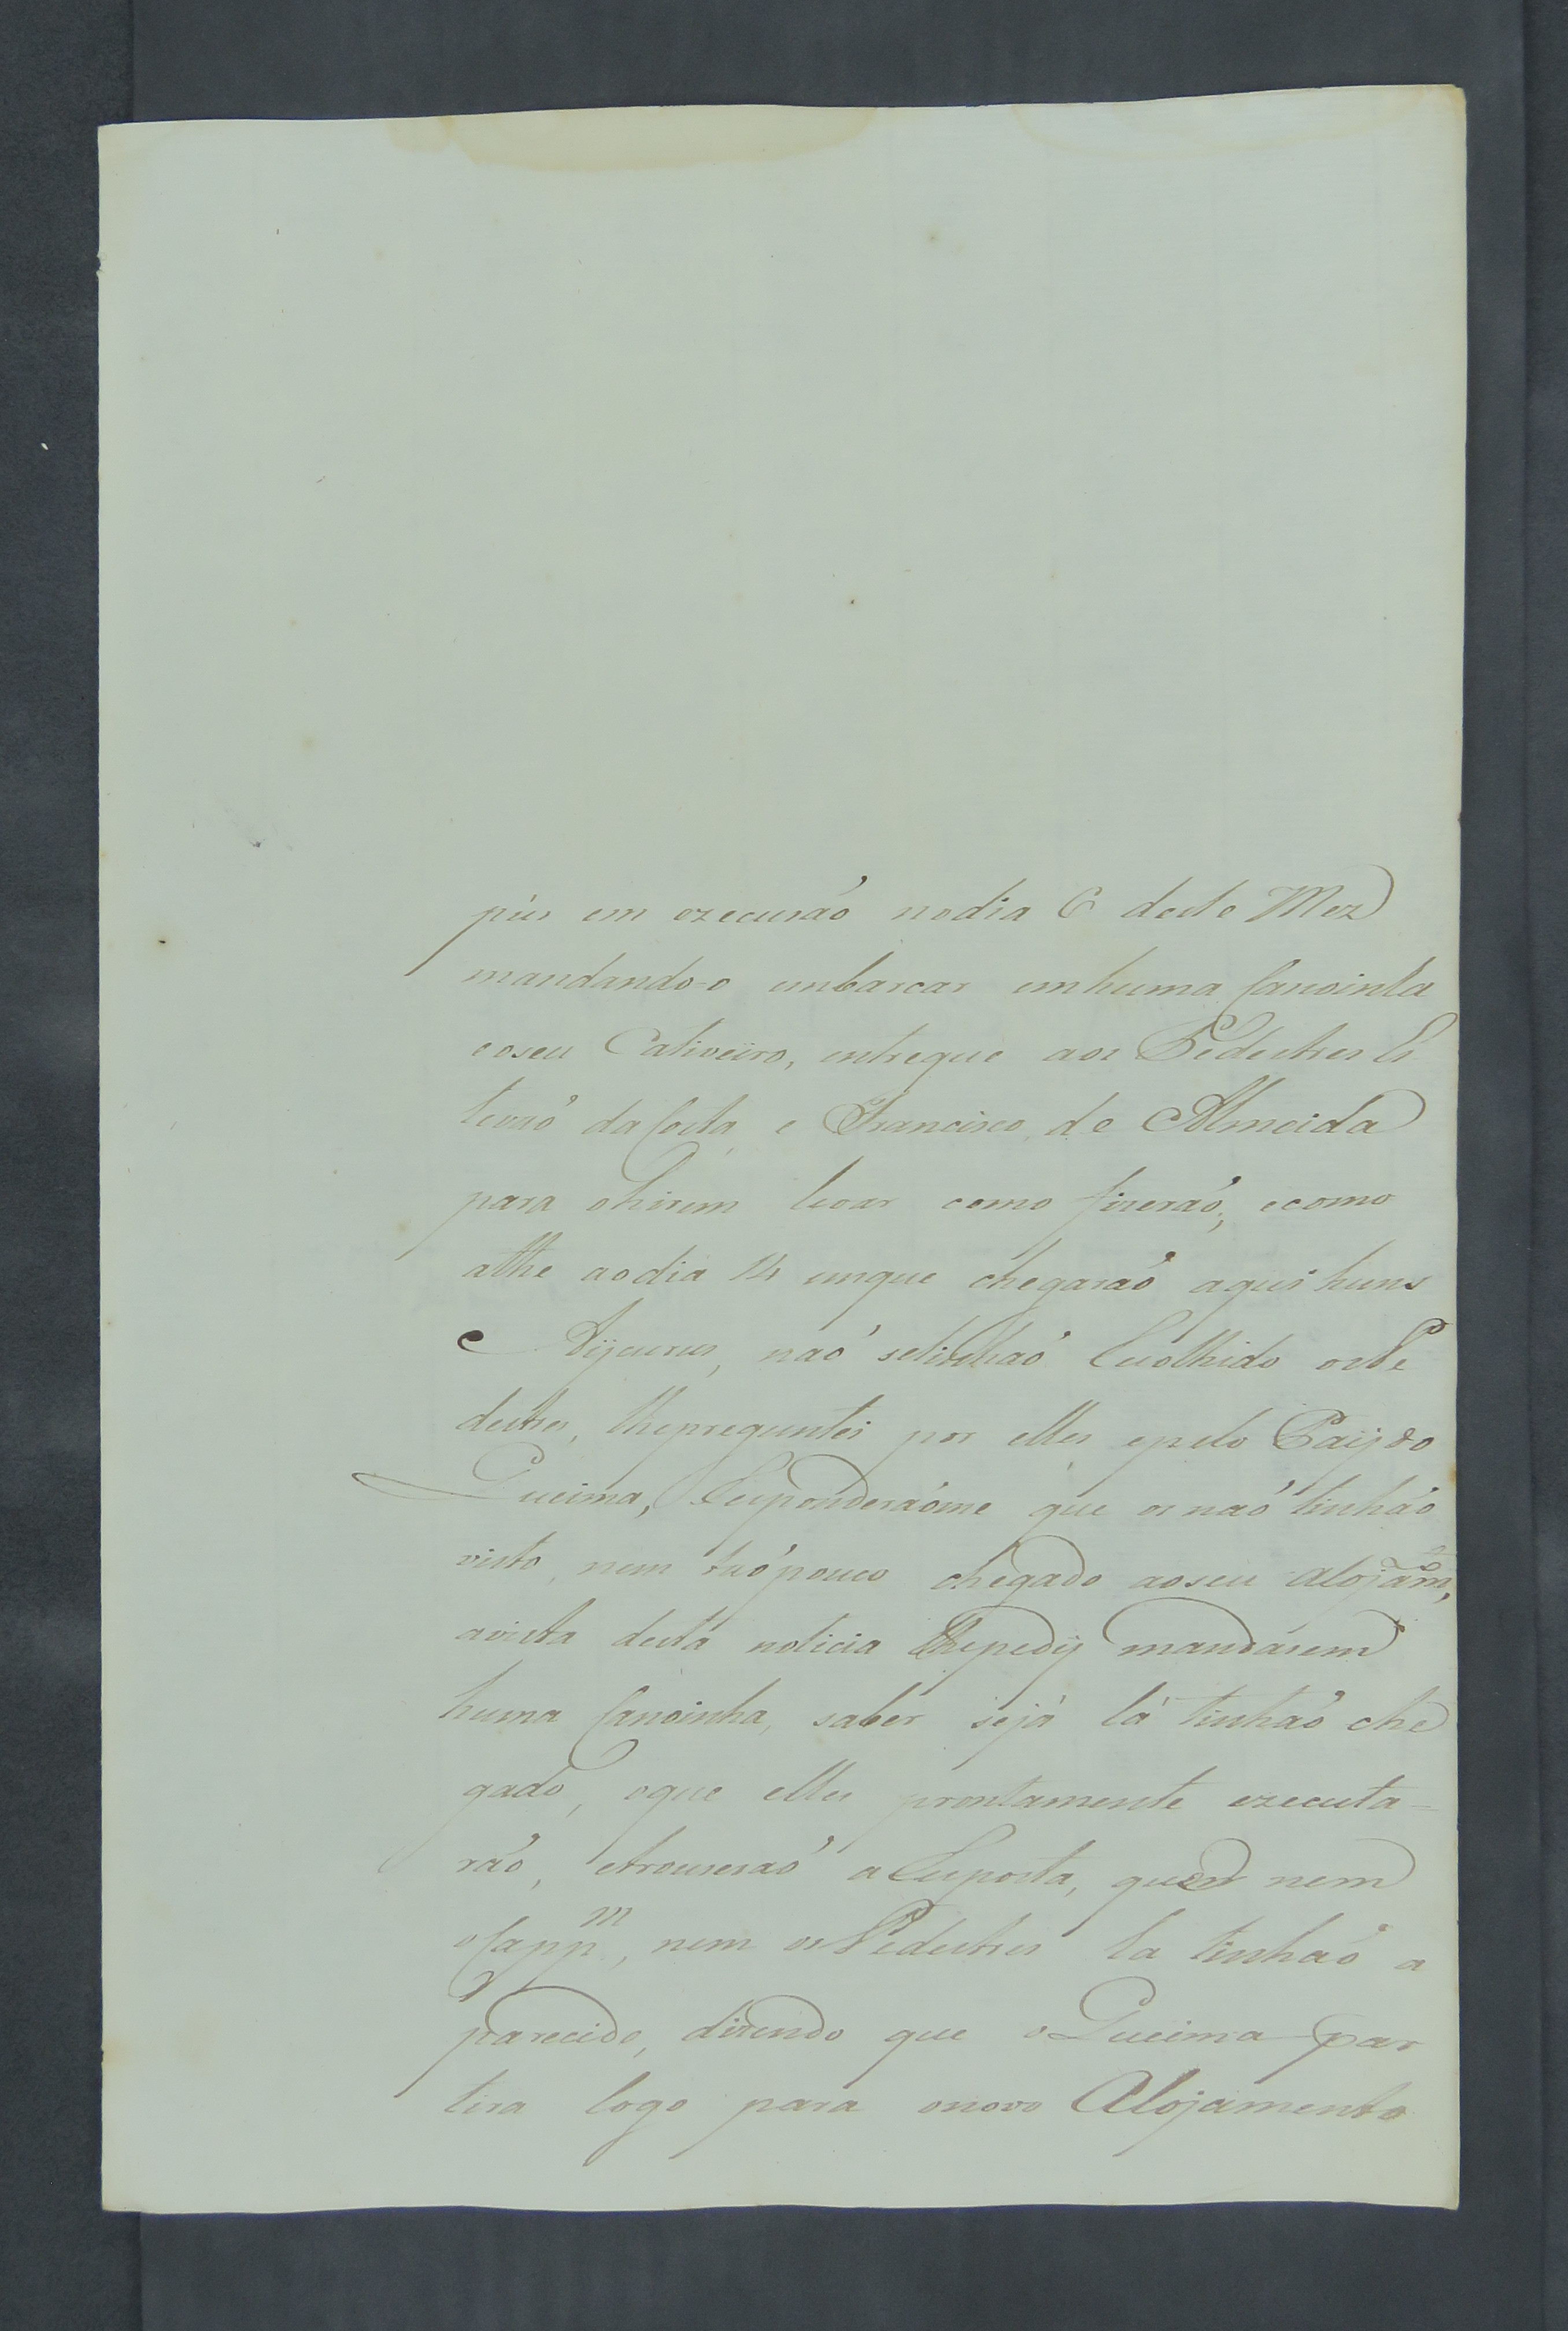 pús em ezecusaó nodia 6 deste Mez
mandando-o embarcar emhuma Canoinha
eoseu Cativeiro, entregue aos Pedestres Es
tevaó daCosta, e Francisco de Almeida
para ohirem levar como fizeraó, ecomo
athe aodia 14 emque chegaraó aqui huns
Aÿcurus, naó setinhaó Recolhido osPe
destres, lhepreguntei por elles epelo Paÿ do
Queima, Responderaóme que os naó tinhaó
visto, nem taópouco chegado aoseu alojam.to,
avista desta noticia lhepedÿ mandasem
huma Canoinha, saber sejá lá tinhaó che
gado, oque elles prontamente ezecuta=
raó, etrouseraó a Resposta, que nem
oCapp.m, nem osPedestres la tinhaó a
parecido, dizendo que oQueima par
tira logo para onovo Alojamento